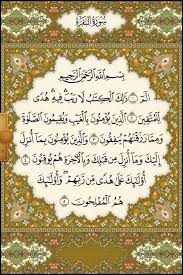 سُورَةُ الْبَقَرَةِ
بِسْمِ اللَّهِ الرَّحْمَٰنِ الرَّحِيمِ
الٓمٓ ۝١ ذَٰلِكَ الْكِتَابُ لَا رَيْبَ ۛ فِيهِ ۛ هُدًى
لِّلْمُتَّقِينَ ۝٢ الَّذِينَ يُؤْمِنُونَ بِالْغَيْبِ وَيُقِيمُونَ الصَّلَوٰةَ
وَمِمَّا رَزَقْنَاهُمْ يُنفِقُونَ ۝٣ وَالَّذِينَ يُؤْمِنُونَ بِمَا أُنزِلَ
إِلَيْكَ وَمَا أُنزِلَ مِن قَبْلِكَ وَبِالْآخِرَةِ هُمْ يُوقِنُونَ ۝٤
أُولَٰئِكَ عَلَىٰ هُدًى مِّن رَّبِّهِمْ ۖ وَأُولَٰئِكَ
هُمُ الْمُفْلِحُونَ ۝٥